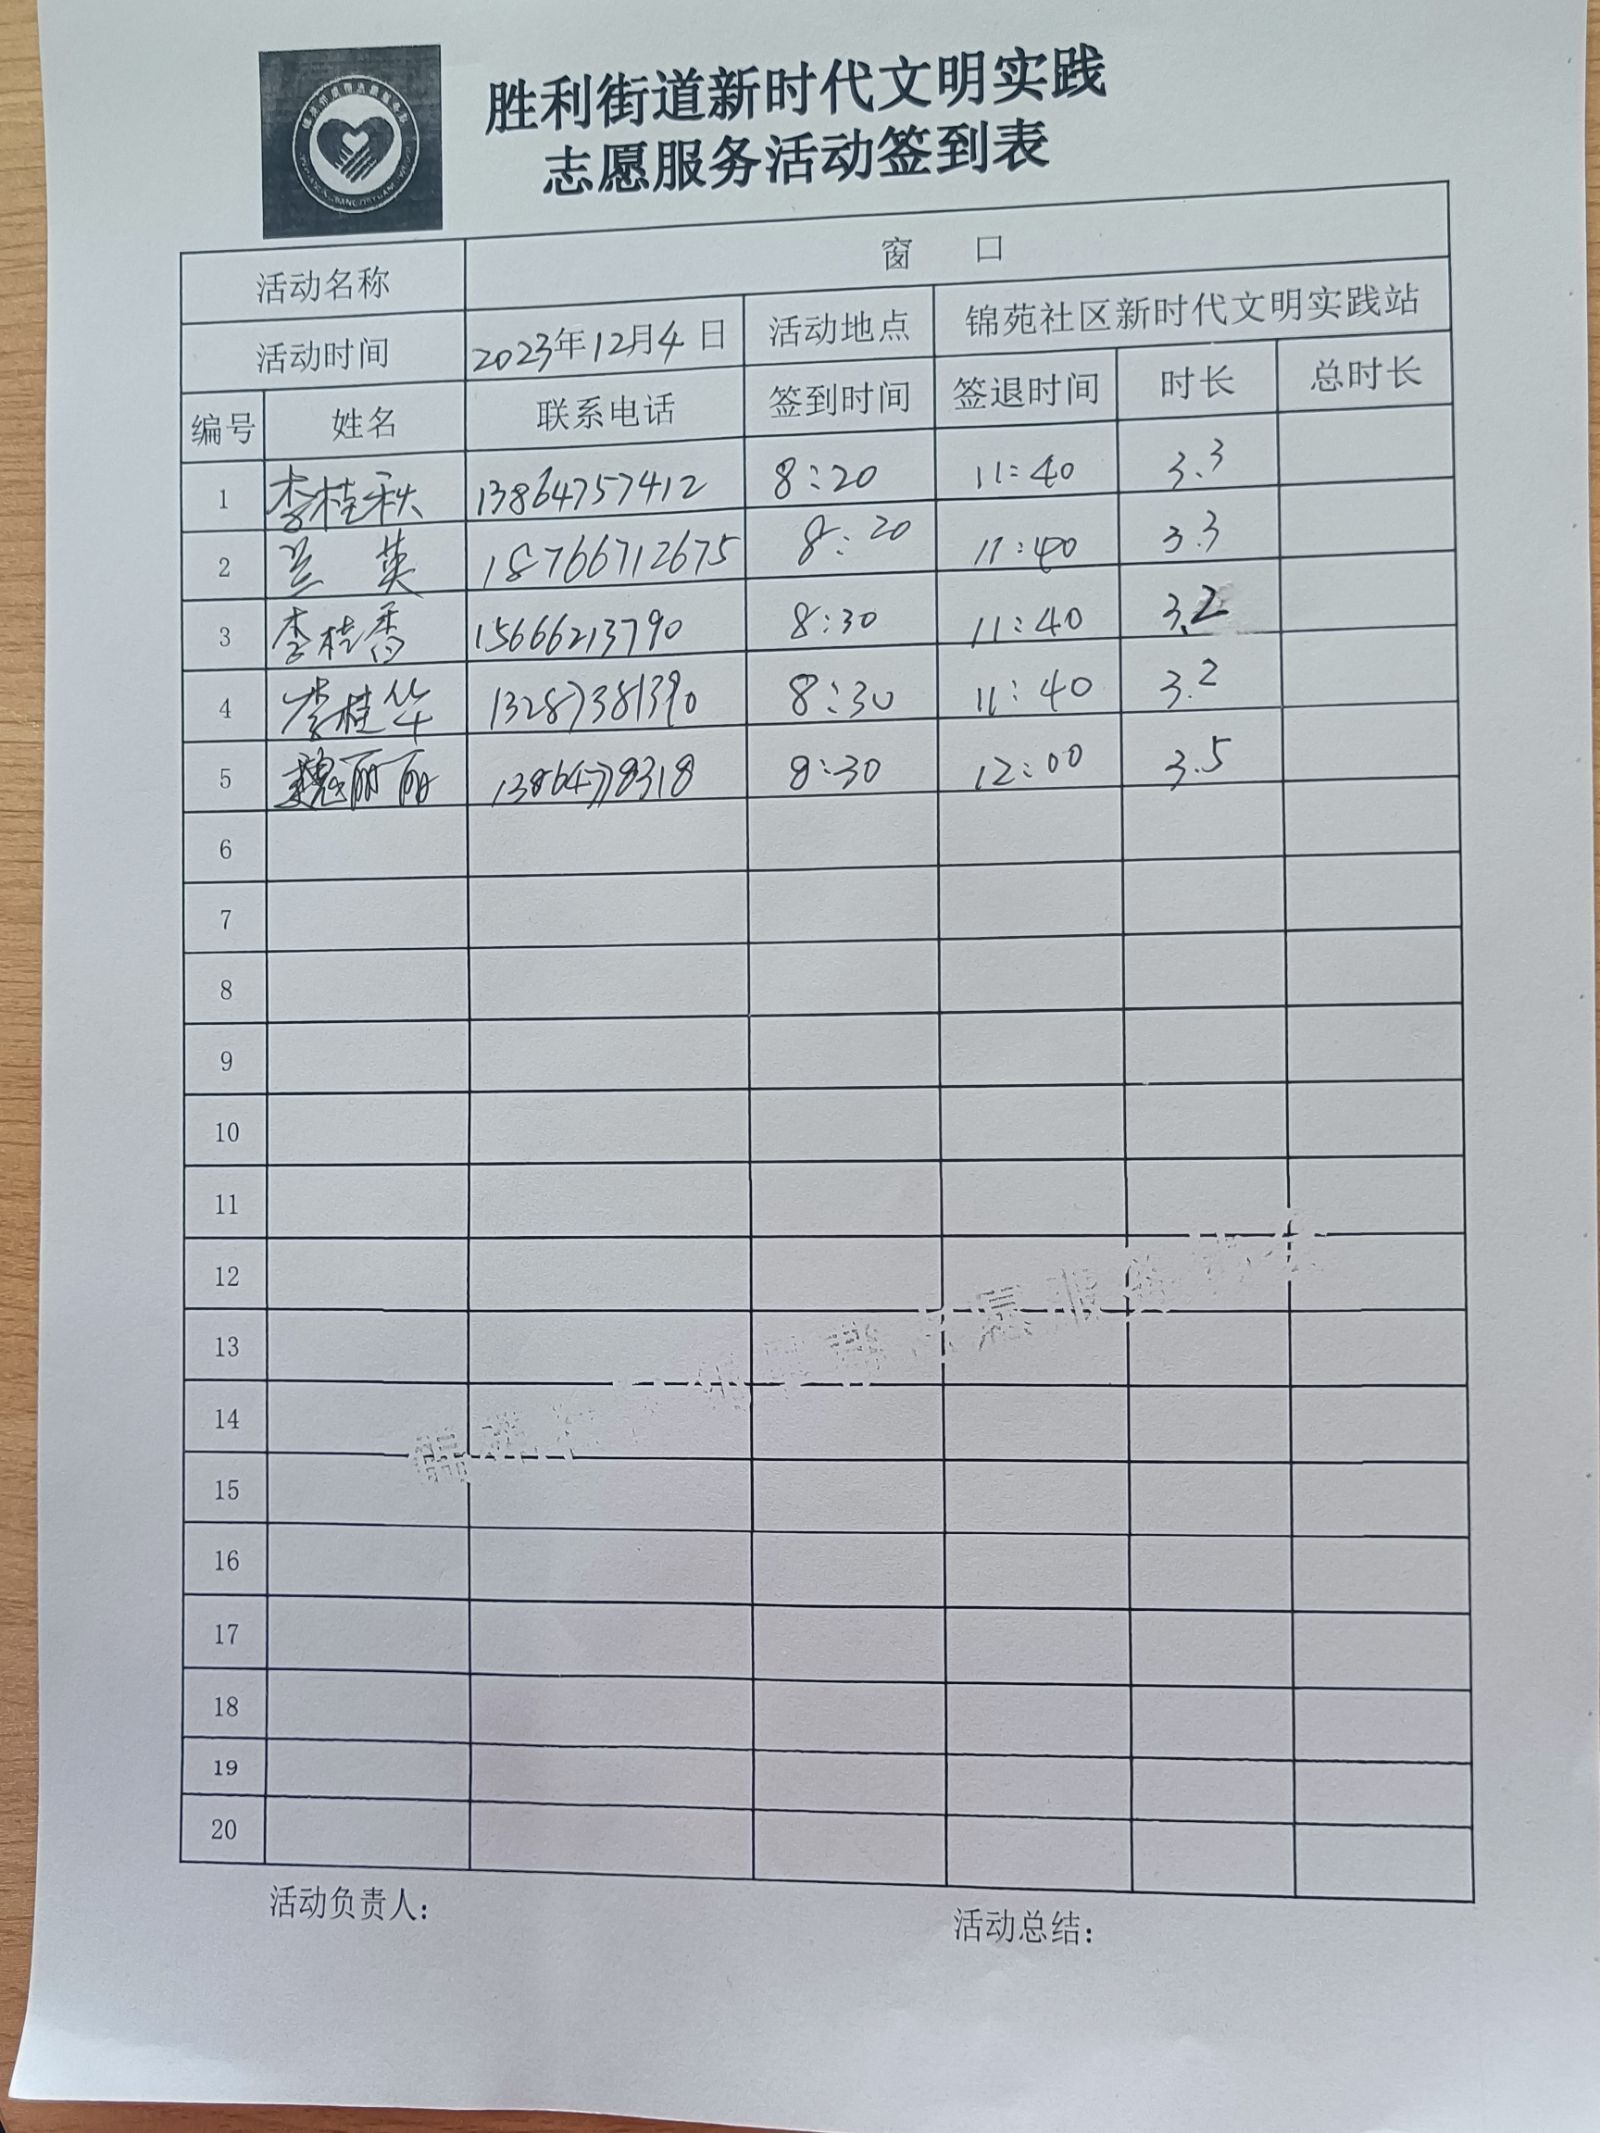 胜利街道新时代文明实践
志愿服务活动签到表
活动名称 窗 口
活动时间 2023年12月4日 活动地点 锦苑社区新时代文明实践站
编号 姓名 联系电话 签到时间 签退时间 时长 总时长
1 李桂秋 13864757412 8:20 11:40 3.3
2 兰英 18766712675 8:20 11:40 3.3
3 李桂香 15666213790 8:30 11:40 3.2
4 李桂华 13287381390 8:30 11:40 3.2
5 魏丽丽 13864778318 8:30 12:00 3.5
6
7
8
9
10
11
12
13
14
15
16
17
18
19
20
活动负责人: 活动总结: